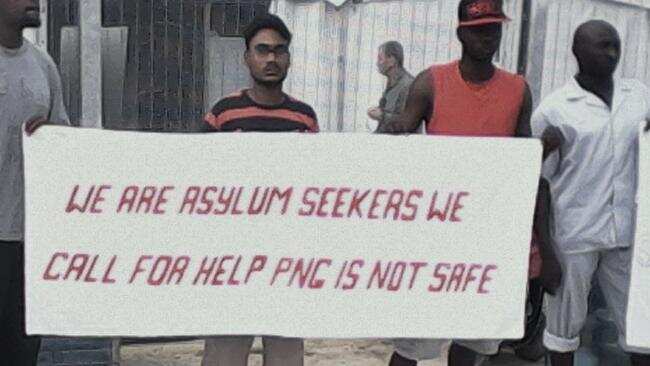 WE ARE ASYLUM SEEKERS WE
CALL FOR HELP PNG IS NOT SAFE